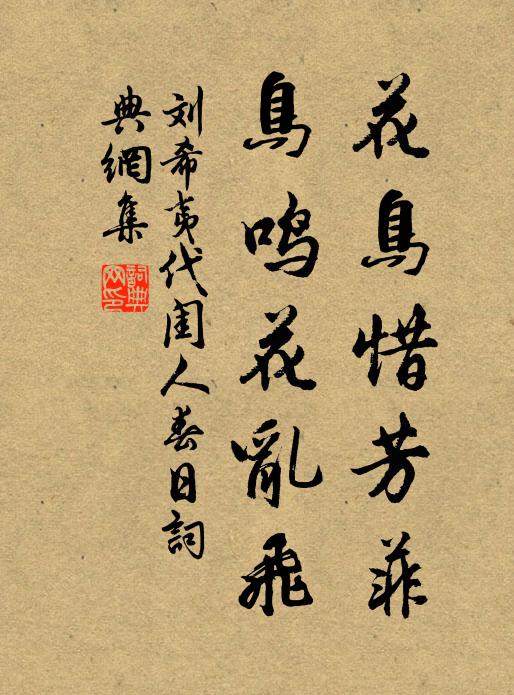 花鳥惜芳菲
鳥鳴花亂飛
刘希夷代闺人春日詞
典網集
詞典
网印